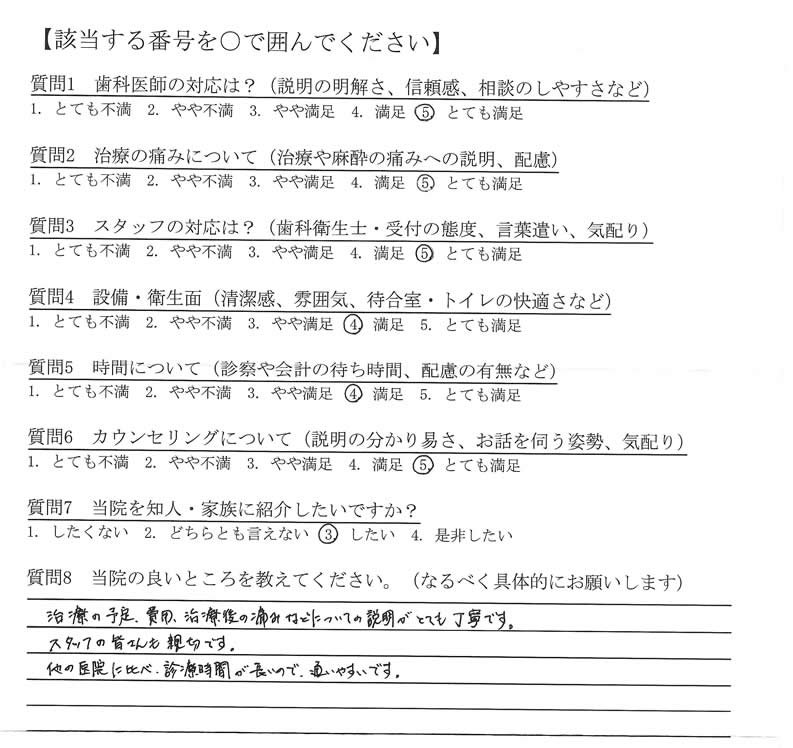 【該当する番号を〇で囲んでください】
質問1 歯科医師の対応は？（説明の明解さ、信頼感、相談のしやすさなど）
1. とても不満 2. やや不満 3. やや満足 4. 満足 ⑤ とても満足
質問2 治療の痛みについて（治療や麻酔の痛みへの説明、配慮）
1. とても不満 2. やや不満 3. やや満足 4. 満足 ⑤ とても満足
質問3 スタッフの対応は？（歯科衛生士・受付の態度、言葉遣い、気配り）
1. とても不満 2. やや不満 3. やや満足 4. 満足 ⑤ とても満足
質問4 設備・衛生面（清潔感、雰囲気、待合室・トイレの快適さなど）
1. とても不満 2. やや不満 3. やや満足 ④ 満足 5. とても満足
質問5 時間について（診察や会計の待ち時間、配慮の有無など）
1. とても不満 2. やや不満 3. やや満足 ④ 満足 5. とても満足
質問6 カウンセリングについて（説明の分かり易さ、お話を伺う姿勢、気配り）
1. とても不満 2. やや不満 3. やや満足 4. 満足 ⑤ とても満足
質問7 当院を知人・家族に紹介したいですか？
1. したくない 2. どちらとも言えない ③ したい 4. 是非したい
質問8 当院の良いところを教えてください。（なるべく具体的にお願いします）
治療の予定、費用、治療後の痛みなどについての説明がとても丁寧です。
スタッフの皆さんも親切です。
他の医院に比べ、診療時間が長いので、通いやすいです。